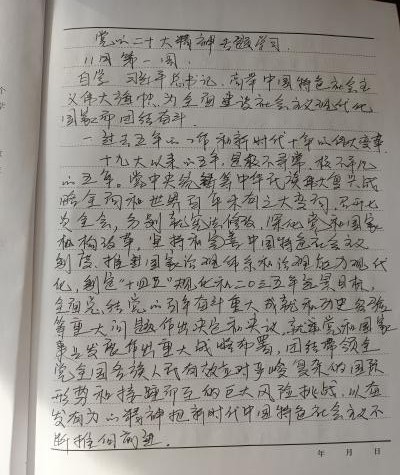 党的二十大精神专题学习.
11月第一周.
自学 习近平总书记,高举中国特色社会主
义伟大旗帜,为全面建设社会主义现代化
国家而团结奋斗.
一过去五年的工作和新时代十年的伟大变革
十九大以来的五年,是极不寻常、极不平凡
的五年。党中央统筹中华民族伟大复兴战
略全局和世界百年未有之大变局,召开七
次全会,分别就宪法修改,深化党和国家
机构改革,坚持和完善中国特色社会主义
制度、推进国家治理体系和治理能力现代
化,制定"十四五"规化和二〇三五年远景目标,
全面总结党的百年奋斗重大成就和历史经验
等重大问题作出决定和决议,就党和国家
事业发展作出重大战略部署,团结带领全
党全国各族人民有效应对严峻复杂的国际
形势和接踵而至的巨大风险挑战,以奋
发有为的精神把新时代中国特色社会主义不
断推向前进。
年 月 日